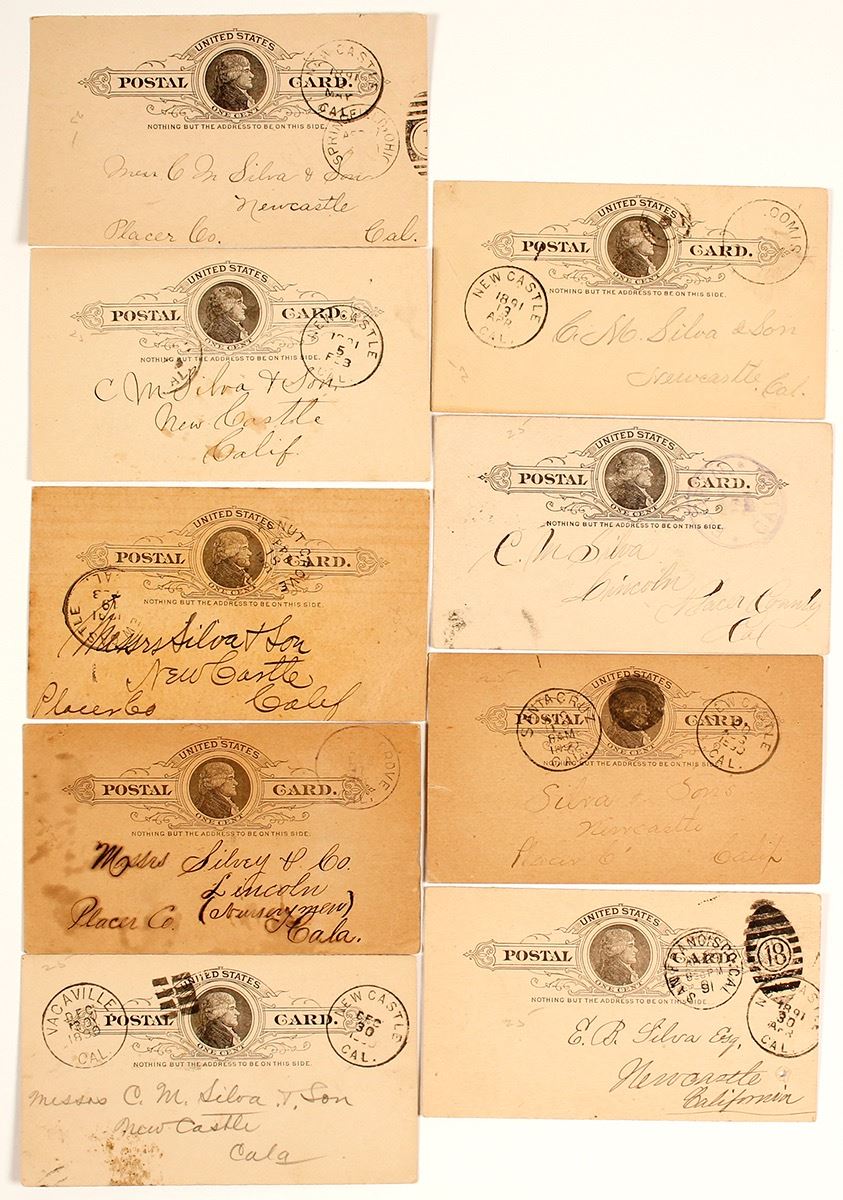 UNITED STATES
POSTAL CARD.
ONE CENT
NOTHING BUT THE ADDRESS TO BE ON THIS SIDE.
NEW CASTLE
1891
MAY
CALF
SPRIN
OHIO
1
Mess C M Silva & Son
Newcastle
Placer Co. Cal.
UNITED STATES
POSTAL CARD.
ONE CENT
NOTHING BUT THE ADDRESS TO BE ON THIS SIDE.
NEW CASTLE
5
FEB
CAL.
AL
C M Silva & Son,
New Castle
Calif.
UNITED STATES
POSTAL CARD.
ONE CENT
NOTHING BUT THE ADDRESS TO BE ON THIS SIDE.
NUT GROVE
STLE
CAL.
Messrs Silva & Son
New Castle
Placer Co Calif
UNITED STATES
POSTAL CARD.
ONE CENT
NOTHING BUT THE ADDRESS TO BE ON THIS SIDE.
ROVE
Messrs Silvey & Co.
Lincoln
(Nurserymen)
Placer Co. Cala.
25
UNITED STATES
POSTAL CARD.
ONE CENT
NOTHING BUT THE ADDRESS TO BE ON THIS SIDE.
VACAVILLE
DEC
CAL.
NEW CASTLE
DEC
30
CAL.
Messrs C. M. Silva & Son
New Castle
Cala
UNITED STATES
POSTAL CARD.
ONE CENT
NOTHING BUT THE ADDRESS TO BE ON THIS SIDE.
COMIS
NEW CASTLE
1891
3
APR
CAL.
C. M. Silva & Son
Newcastle
Cal.
25
UNITED STATES
POSTAL CARD.
ONE CENT
NOTHING BUT THE ADDRESS TO BE ON THIS SIDE.
C. M Silva
Lincoln
Placer County
Cal
UNITED STATES
POSTAL CARD.
ONE CENT
NOTHING BUT THE ADDRESS TO BE ON THIS SIDE.
SANTA CRUZ
6AM
CAL.
NEW CASTLE
CAL.
Silva & Sons
Newcastle
Placer Co Calif
UNITED STATES
POSTAL CARD.
ONE CENT
NOTHING BUT THE ADDRESS TO BE ON THIS SIDE.
SAN FRANCISCO, CAL
91
18
1891
30
APR
CAL.
25
E. B. Silva Esq,
Newcastle
California